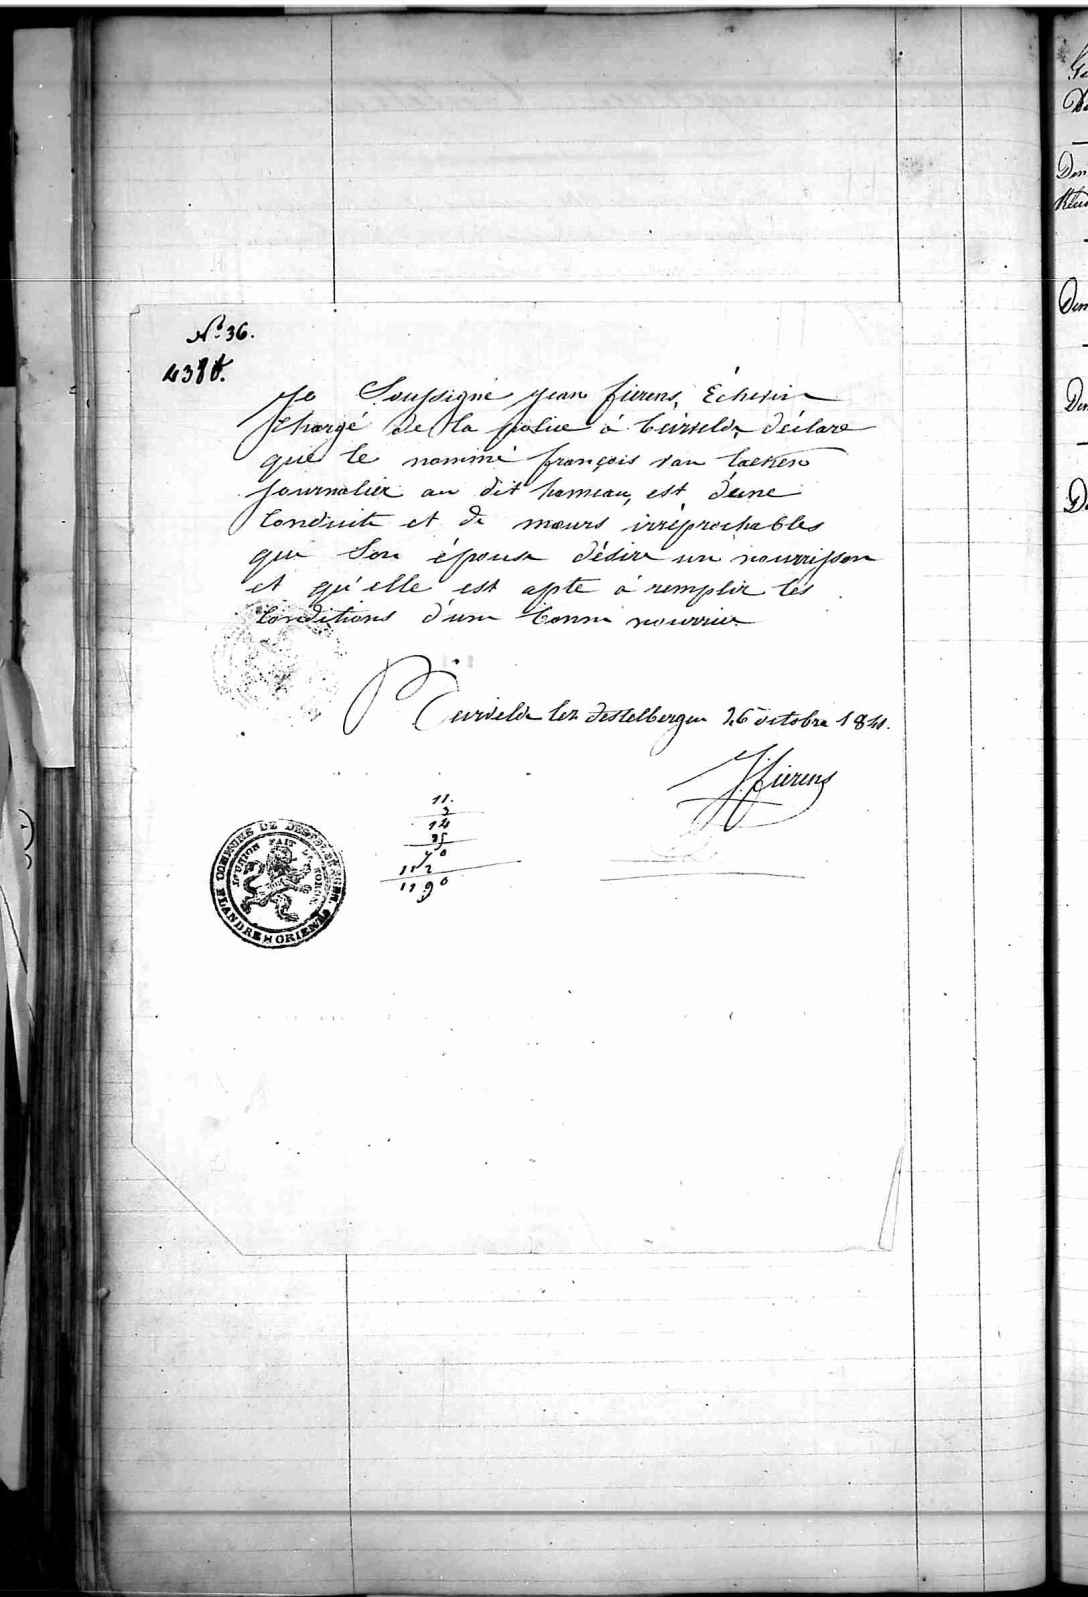 N.º 36.
438
Je Soussigné Jean fierens, Échevin
Chargé de la police à beirvelde, déclare
que le nommé françois van laeken
journalier au dit hameau, est d'une
Conduite et de mœurs irréprochables
que Son épouse désire un nourrisson
et qu'elle est apte à remplir les
Conditions d'une bonne nourrice
Beirvelde lez destelbergen 26 octobre 18
J. fierens
11.
3
14
25
70
112
1190
COMMUNE DE DESTELBERGEN
FLANDRE ORIENT.
L'UNION FAIT LA FORCE
Den
Den